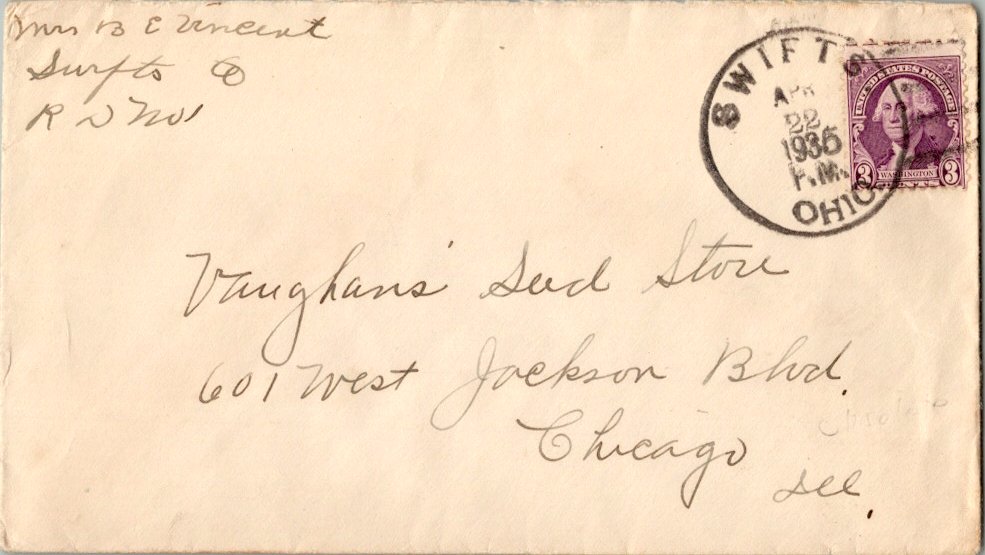 Mrs B E Vincent
Swifts O
R D No 1
SWIFTS
APR
22
1935
P.M.
OHIO.
UNITED STATES POSTAGE
3 WASHINGTON 3
CENTS
Vaughans' Seed Store
601 West Jackson Blvd.
Chicago
Ill.